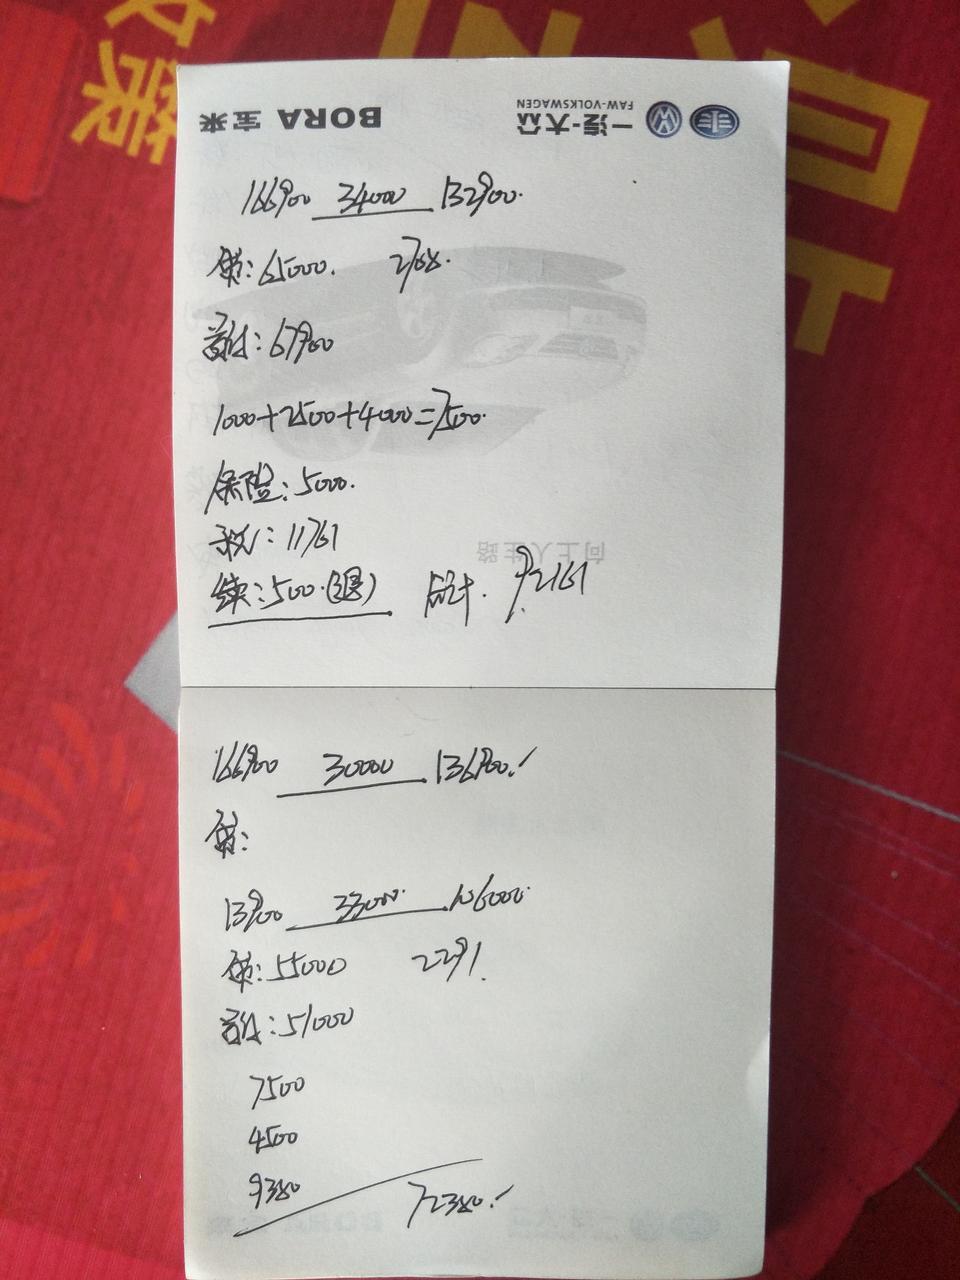 BORA 宝来 一汽-大众
FAW-VOLKSWAGEN
166900 34000 132900.
贷: 65000. 2708.
首付: 67900
1000+2500+4000=7500.
保险: 5000.
税: 11761
续: 500.(退) 总计. 92161
向上人生路
166900 30000 136900.
贷:
13900 33000. 106000.
贷: 55000 2291.
首付: 51000
7500
4500
9380 72380.